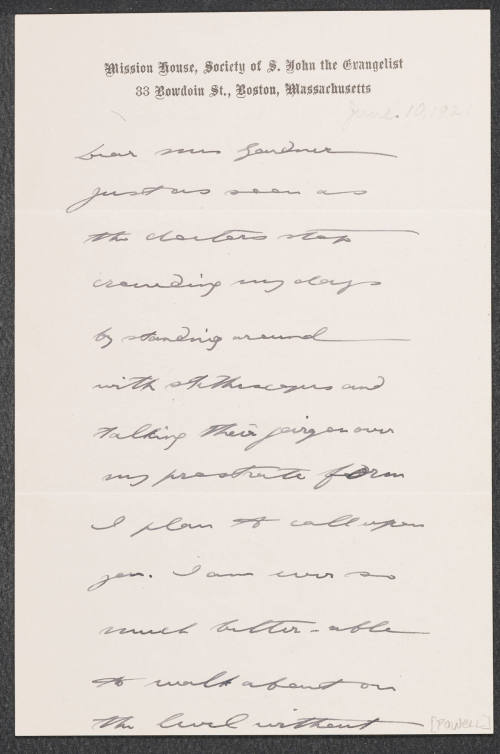 Mission House, Society of S. John the Evangelist
33 Bowdoin St., Boston, Massachusetts
June 10, 1921
Dear Mrs Gardner
Just as soon as
the doctors stop
crowding my days
by standing around
with stethoscopes and
talking their jargon over
my prostrate form
I plan to call upon
you. I am ever so
much better - able
to walk about on
the level without
[Powell]